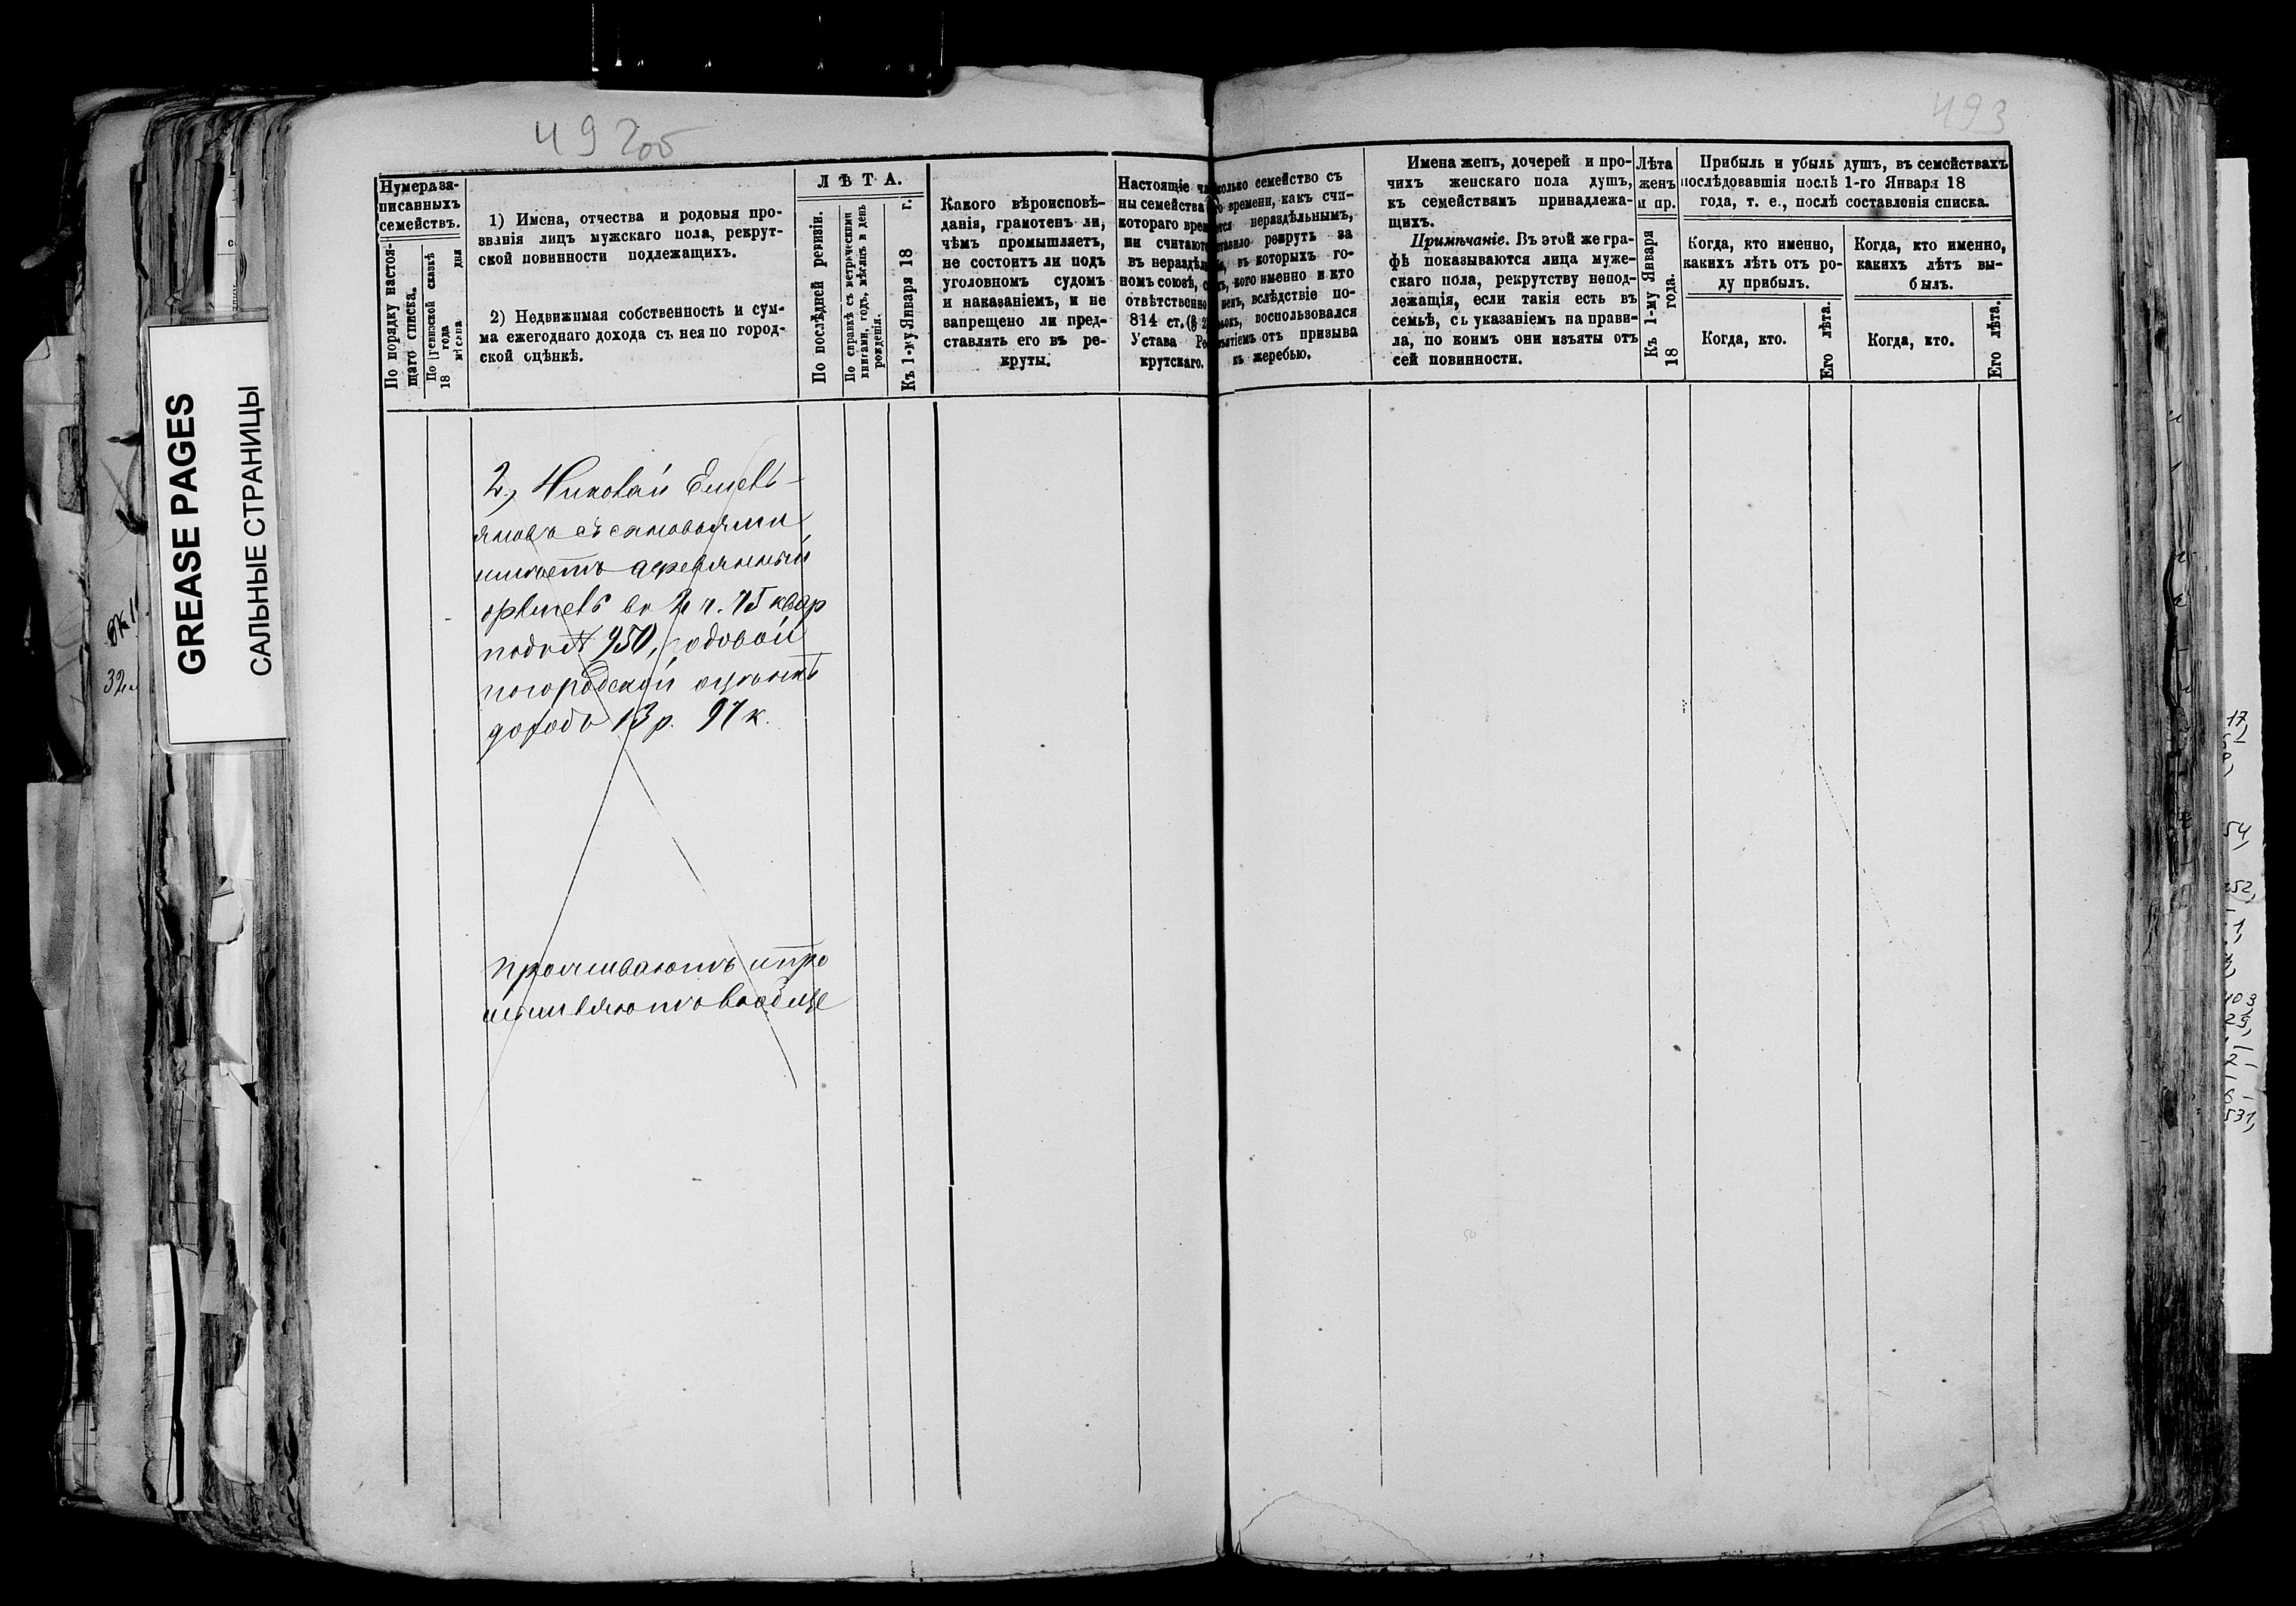 492об
493
GREASE PAGES
САЛЬНЫЕ СТРАНИЦЫ
Нумера за-
писанныхъ
семействъ.
По порядку настоя-
щаго списка.
По ревизской сказкѣ
18 года
мѣсяца дня
1) Имена, отчества и родовыя про-
званія лицъ мужскаго пола, рекрут-
ской повинности подлежащихъ.
2) Недвижимая собственность и сум-
ма ежегоднаго дохода съ нея по город-
ской оцѣнкѣ.
ЛѢТА.
По послѣдней ревизіи.
По справкѣ съ метрическими
книгами, годъ, мѣсяцъ и день
рожденія.
Къ 1-му Января 18 г.
Какого вѣроисповѣ-
данія, грамотенъ ли,
чѣмъ промышляетъ,
не состоитъ ли подъ
уголовномъ судомъ
и наказаніемъ, и не
запрещено ли пред-
ставлять его въ ре-
круты.
Настоящіе чл
ны семейства
котораго врем
ни считают
въ нераздѣл
номъ союзѣ, с
отвѣтственно
814 ст. (§ 2
Устава Ре
крутскаго.
колько семейство съ
го времени, какъ счи-
ется нераздѣльнымъ,
ставило рекрутъ за
въ которыхъ го-
кого именно и кто
вслѣдствіе по-
воспользовался
ятіемъ отъ призыва
къ жеребью.
Имена женъ, дочерей и про-
чихъ женскаго пола душъ,
къ семействамъ принадлежа-
щихъ.
Примѣчаніе. Въ этой же гра-
фѣ показываются лица муже-
скаго пола, рекрутству непод-
лежащія, если такія есть въ
семьѣ, съ указаніемъ на прави-
ла, по коимъ они изъяты отъ
сей повинности.
Лѣта
женъ
и пр.
Къ 1-му Января
18 года.
Прибыль и убыль душъ, въ семействахъ
послѣдовавшія послѣ 1-го Января 18
года, т. е., послѣ составленія списка.
Когда, кто именно,
какихъ лѣтъ отъ ро-
ду прибылъ.
Когда, кто.
Его лѣта.
Когда, кто именно,
какихъ лѣтъ вы-
былъ.
Когда, кто.
Его лѣта.
2, Николай Емель-
яновъ съ сыновьями
имѣетъ деревянный
флигель во 2 ч. 75 квар
подъ № 950, годовой
по городской оцѣнкѣ
доходъ 13 р. 97 к.
проживаютъ и про
мышляютъ вообще